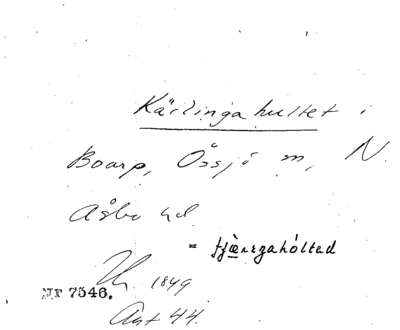 Kärlingahultet i
Boarp, Össjö m, N.
Åsbo hd
= tjæregahólted
1849
Nr 7546.
Ant 44.